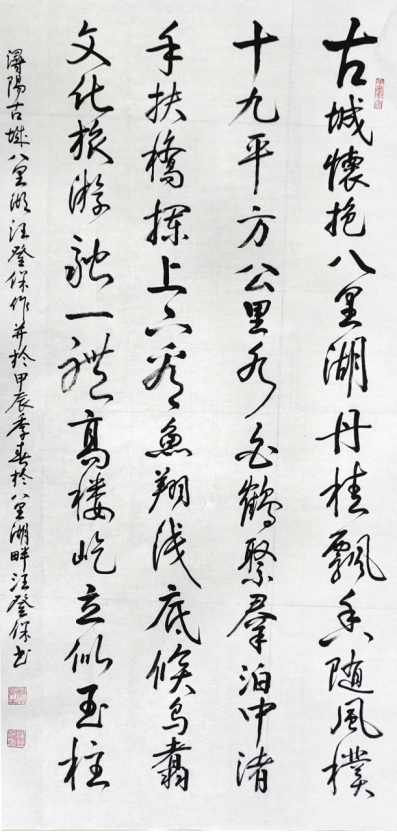 古城懷抱八里湖丹桂飄香随風撲
十九平方公里水白鶴聚羣泊中渚
手扶橋欄上下看魚翔浅底候鸟翥
文化旅游融一體高楼屹立似玉柱
潯陽古城八里湖汪登保作并於甲辰季春於八里湖畔汪登保书